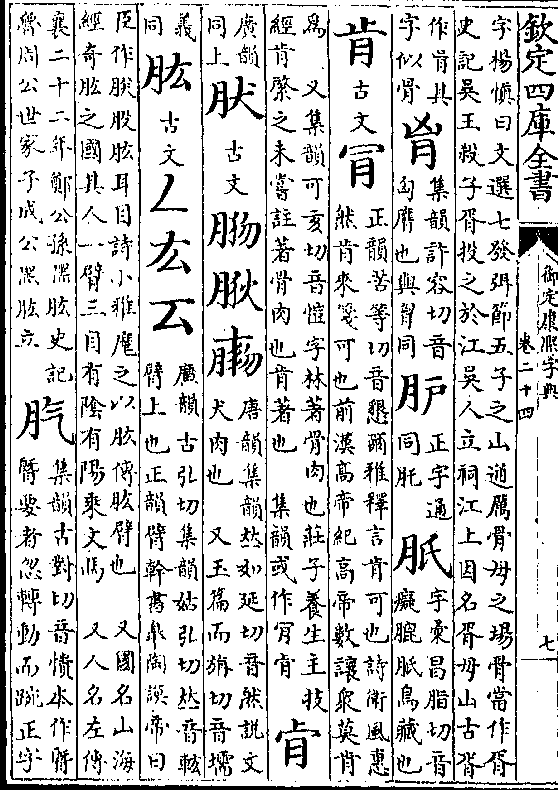 欽定四庫全書
御定康熙字典
卷二十四
七
字楊慎曰文選七發弭節五子之山通厲骨母之場骨當作胥
史記吳王殺子胥投之於江吳人立祠江上因名胥母山古胥
作肯其
字似骨
集韻許容切音
匈膺也與胷同
正字通
字彙昌脂切音
癡膍胵鳥藏也
肯 古文 肎
正韻苦等切音懇爾雅釋言肯可也詩衛風惠
然肯來箋可也前漢高帝紀高帝數讓衆莫肯
爲 又集韻可亥切音愷字林著骨肉也莊子養生主技
經肯綮之未嘗註著骨肉也肯著也 集韻或作肎肻
肻
廣韻
同上
肰 古文
唐韻集韻𠀤如延切音然說文
犬肉也 又玉篇而猯切音壖
義
同
肱 古文 𠃋厷云
廣韻古弘切集韻姑弘切𠀤音
臂上也正韻臂幹書皐陶謨帝曰
臣作朕股肱耳目詩小雅麾之以肱傳肱臂也 又國名山海
經奇肱之國其人一臂三目有陰有陽乘文馬 又人名左傳
襄二十二年鄭公孫黑肱史記
魯周公世家子成公黑肱立
集韻古對切音憒本作
腎要者忽轉動而踠正字